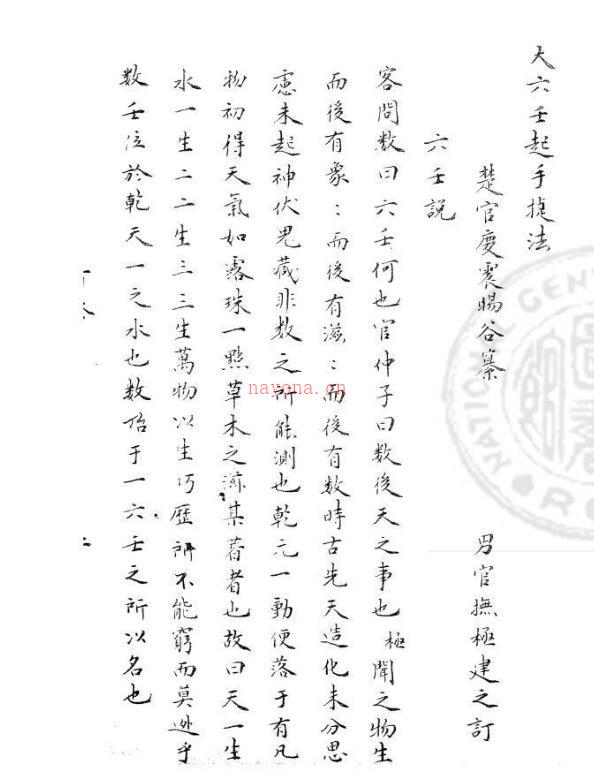 大六壬起手捷法
楚官慶震暘谷纂
男官撫極建之訂
六壬説
客問数曰六壬何也官仲子曰数後天之事也極聞之物生
而後有象：而後有滋：而後有数時古先天造化未分思
慮未起神伏鬼藏非数之所能測也乾元一動便落于有凡
物初得天氣如露珠一點草木之滋其著者也故曰天一生
水一生二二生三三生萬物以生巧歷所不能窮而莫逃乎
数壬位於乾天一之水也数始于一六壬之所以名也
nayona.cn
NATIONAL CEN